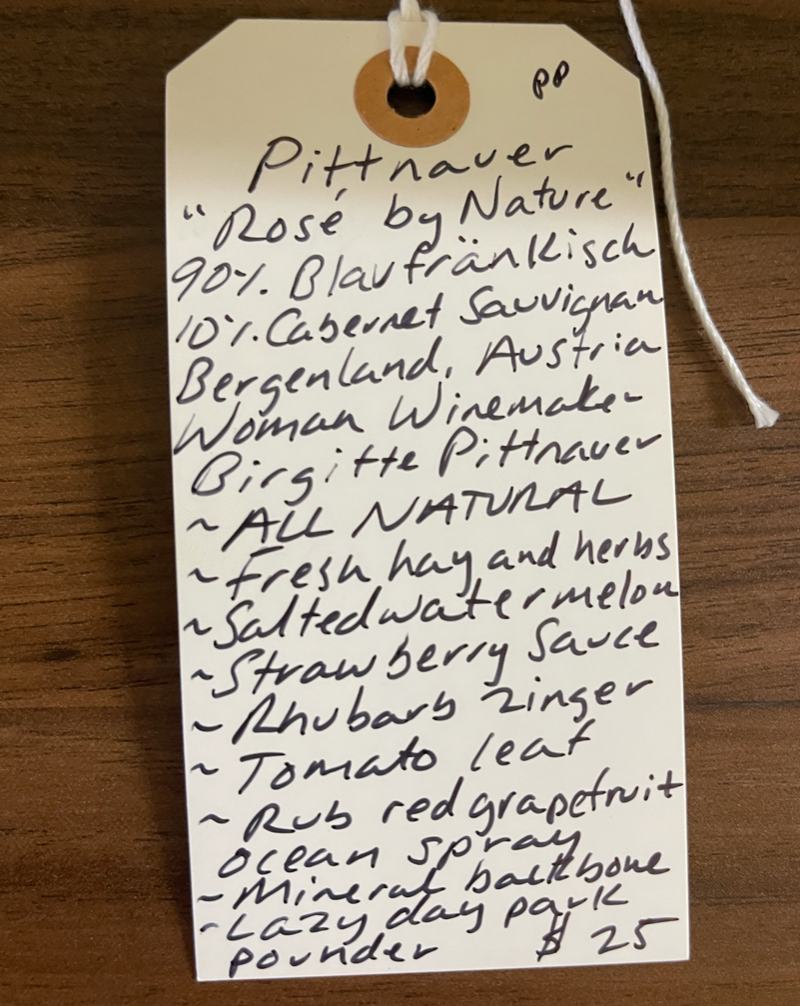 PP
Pittnauer
"Rosé by Nature"
90% Blaufränkisch
10% Cabernet Sauvignan
Bergenland, Austria
Woman Winemaker
Birgitte Pittnauer
~ ALL NATURAL
~ Fresh hay and herbs
~ Salted watermelon
~ Strawberry Sauce
~ Rhubarb zinger
~ Tomato leaf
~ Rub red grapefruit
ocean spray
~ Mineral backbone
~ Lazy day park
pounder $ 25